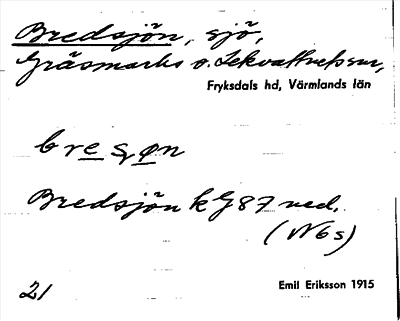 Bredsjön, sjö,
Gräsmarks o. Lekvattnets snr,
Fryksdals hd, Värmlands län
bresøn
Bredsjön k G87 ned.
(N6s)
21
Emil Eriksson 1915